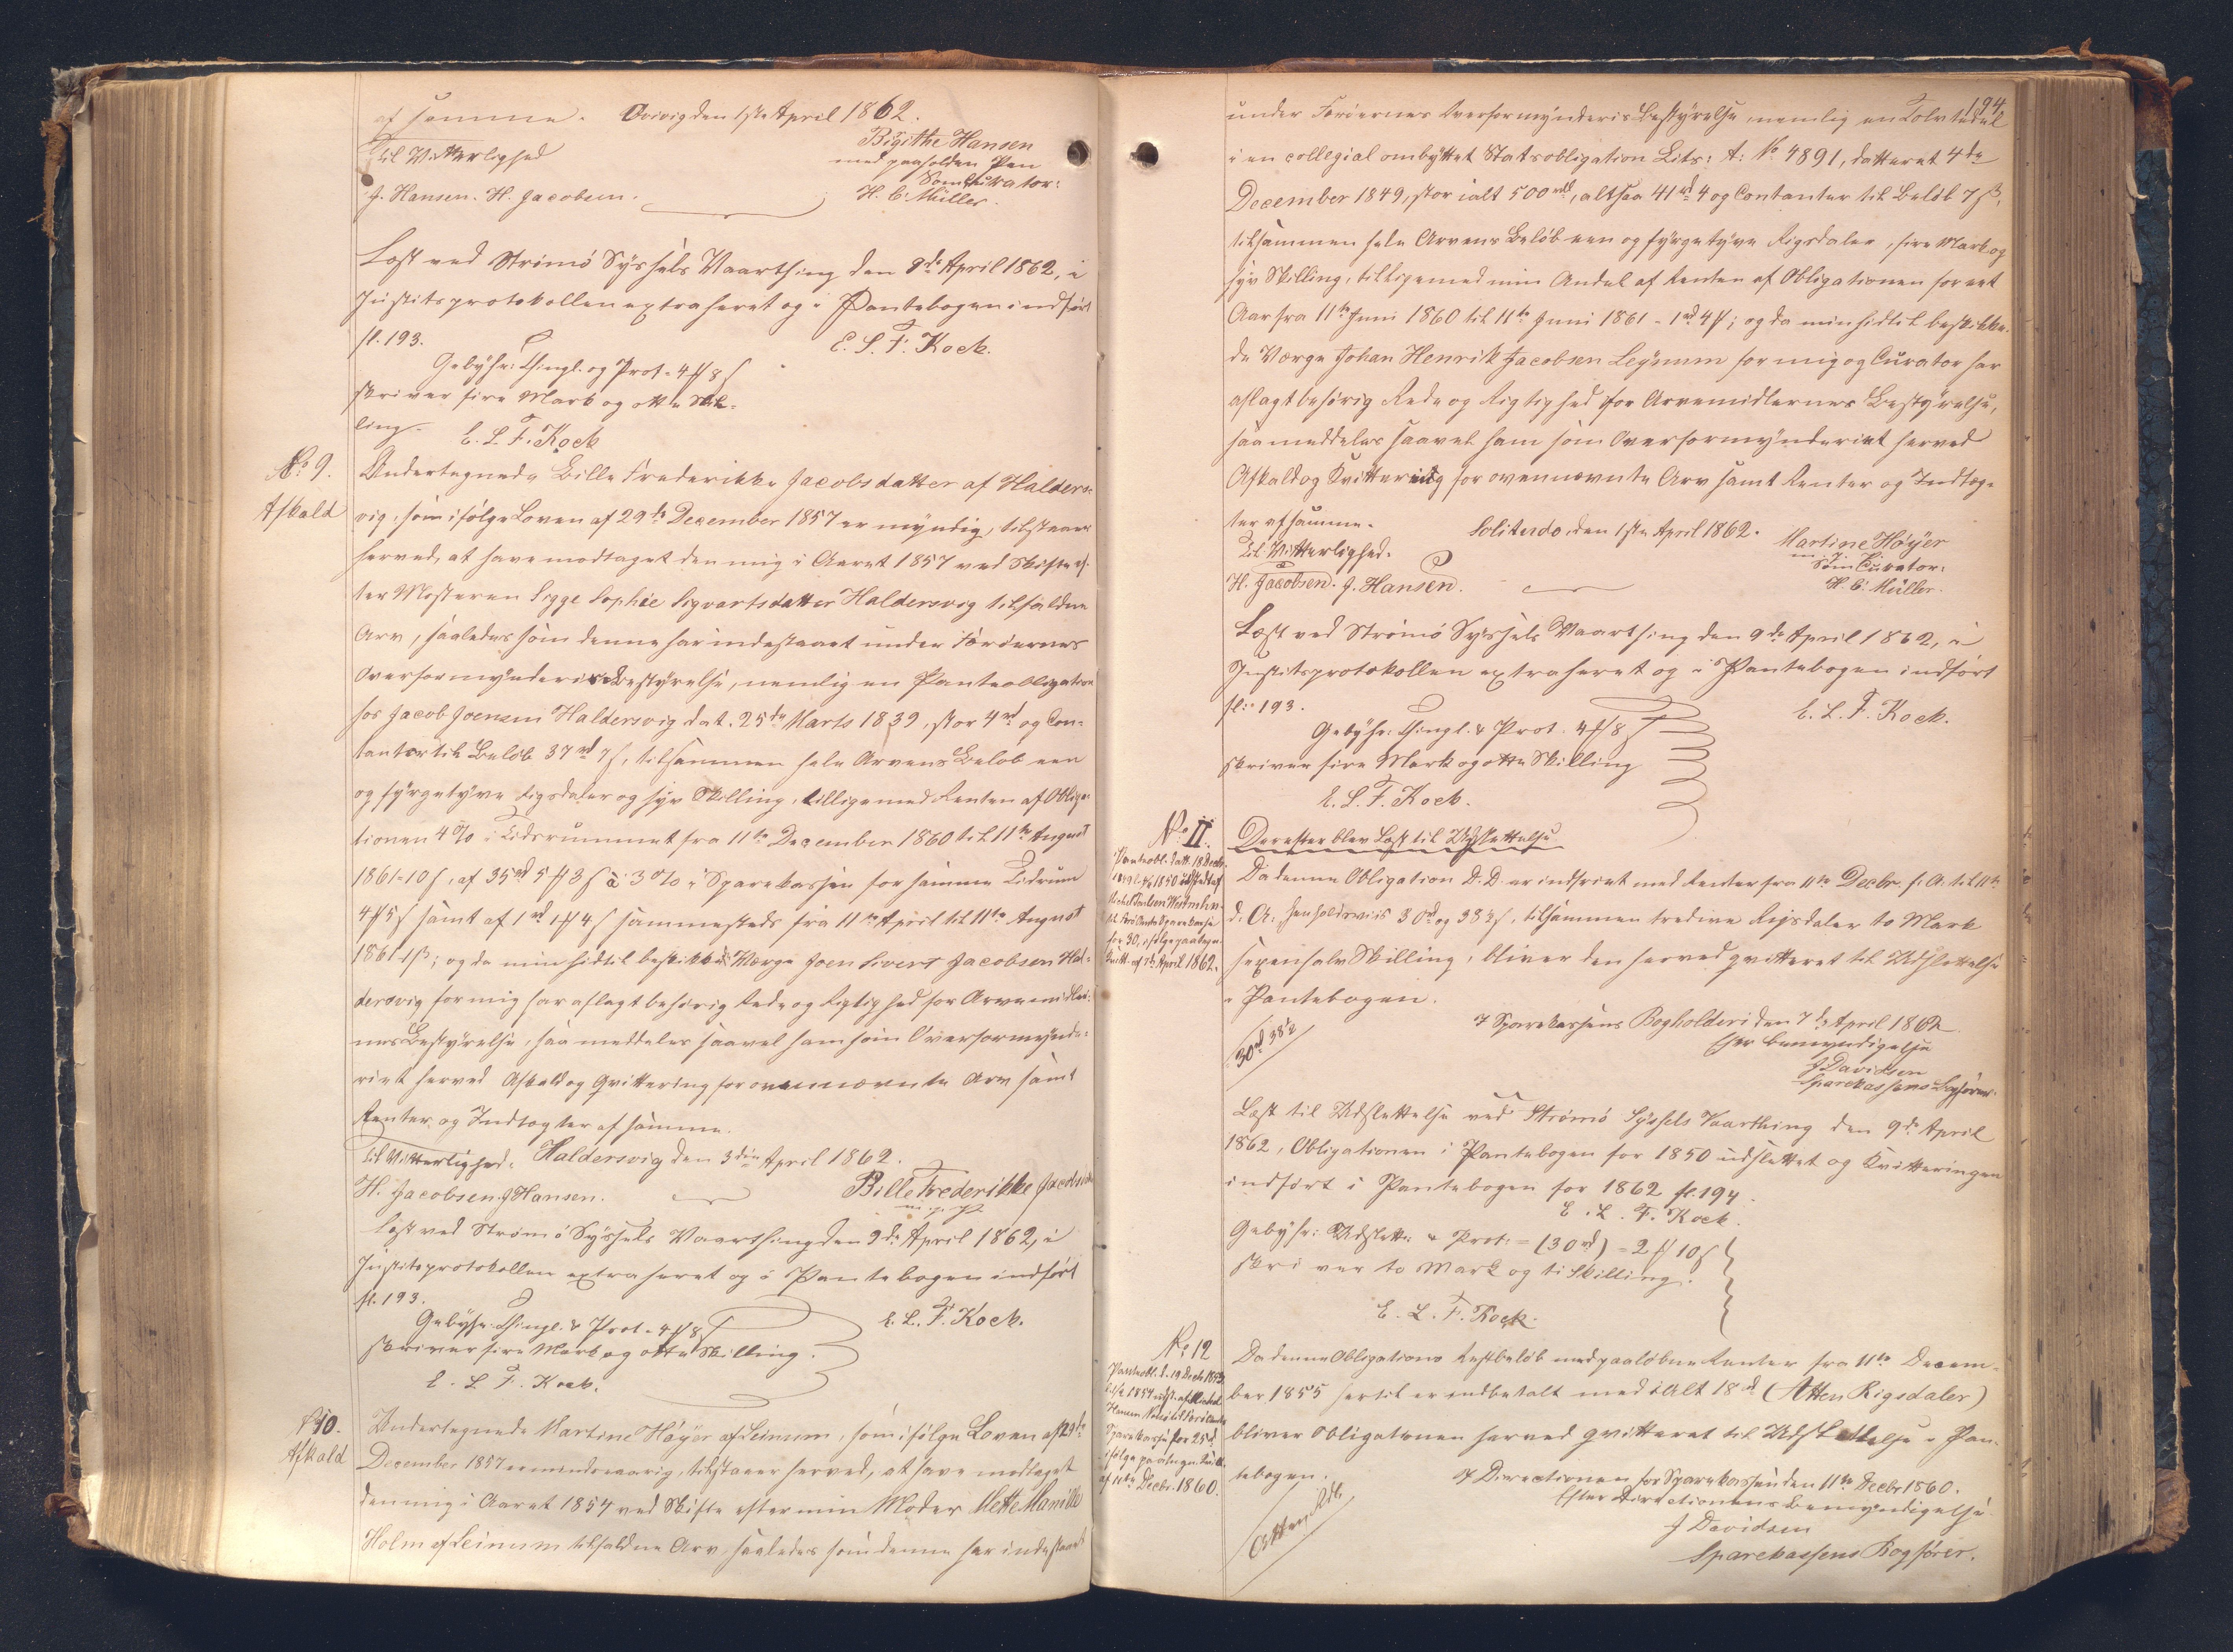 af samme. Qvivig den 1ste April 1862.
Bigithe Hansen
Til Vitterlighed
med paaholden Pen
Som Curator:
J. Hansen. H. Jacobsen.
H. C. Müller.
Læst ved Strømø Sýssels Vaarthing den 9de April 1862, i
Justitsprotokollen extraheret og i Pantebogen indført
fl. 193.
E. L. F. Kock.
Gebyhr: Thingl. og Prot. 4 ℳ 8 ß
skriver fire Mark og otte Skil-
ling.
E. L. F. Kock
No 9.
Afkald
Undertegnede Bille Frederikke Jacobsdatter af Halders-
vig, som ifølge Loven af 29de December 1857 er mýndig, tilstaaer
herved, at have modtaget den mig i Aaret 1857 ved Skifte ef-
ter Mosteren Sigge Sophie Sigvartsdatter Haldersvig tilfaldne
Arv, saaledes som denne har indestaaet under Færøernes
Overformynderies Bestýrelse, nemlig en Panteobligation
hos Jacob Joensen Haldersvig dat. 25de Marts 1839, stor 4 rd og Con-
tanter til Beløb 37 rd 7 ß, tilsammen hele Arvens Beløb een
og fýrgetýve Rigsdaler og sýv Skilling, tilligemed Renten af Obliga-
tionen 4 % i Tidsrummet fra 11te December 1860 til 11te August
1861 - 10 ß, af 35 rd 5 ℳ 3 ß à 3 % i Sparekassen for samme Tidrum
4 ℳ 5 ß samt af 1 rd 1 ℳ 4 ß sammesteds fra 11te April til 11te August
1861 - 1 ß; og da min hidtil beskikkede Værge Joen Sivert Jacobsen Hal-
dersvig for mig har aflagt behørig Rede og Rigtighed for Arvemidler-
nes Bestýrelse, saa meddeles saavel ham som Overformynde-
riet herved Afkald og Qvittering for ovennævnte Arv samt
Renter og Indtægter af samme.
Til Vitterlighed:
Haldersvig den 3die April 1862.
H. Jacobsen. J Hansen.
Bille Frederikke Jacobsdatter
m. p. P
Læst ved Strømø Sýssels Vaarthing den 9de April 1862, i
Justitsprotokollen extraheret og i Pantebogen indført
fl. 193.
E. L. F. Kock.
Gebyhr: Thingl. & Prot. 4 ℳ 8 ß
skriver fire Mark og otte Skilling.
E. L. F. Kock.
No 10.
Afkald
Undertegnede Martine Høyer af Leinum, som ifølge Loven af 29de
December 1857 er mindreaarig, tilstaaer herved, at have modtaget
den mig i Aaret 1854 ved Skifte efter min Moder Mette Marie
Holm af Leinum tilfaldne Arv saaledes som denne har indestaaet
194.
under Færøernes Overformýnderies Bestýrelse, nemlig en Tolvtedel
i en collegial ombýttet Statsobligation Litr: A: No 4891, datteret 4de
December 1849, stor ialt 500 rdl, altsaa 41 rd 4 og Contanter til Beløb 7 ß,
tilsammen hele Arvens Beløb een og fýrgetýve Rigsdaler, fire Mark og
sýv Skilling, tilligemed min Andel af Renten af Obligationen for eet
Aar fra 11te Juni 1860 til 11te Juni 1861 - 1 rd 4 ℳ; og da min hidtil beskikke-
de Værge Johan Henrik Jacobsen Leýnum for mig og Curator har
aflagt behørig Rede og Rigtighed for Arvemidlernes Bestýrelse,
saa meddeles saavel ham som Overformýnderiet herved
Afkald og Qvittering for ovennævnte Arv samt Renter og Indtæg-
ter af samme.
Solitude, den 1ste April 1862.
Martine Høyer
Til Vitterlighed.
m. p. P.
Som Curator:
H. Jacobsen. J. Hansen.
H. C. Müller.
Læst ved Strømø Sýssels Vaarthing den 9de April 1862, i
Justitsprotokollen extraheret og i Pantebogen indført
fl: 193.
E. L. F. Kock.
Gebýhr: Thingl. & Prot. 4 ℳ 8 ß
skriver fire Mark og otte Skilling
E. L. F. Kock.
No II.
Derefter blev Læst til Udslettelse
Panteobl. datt. 18 Decbr.
1850 udstedt af
for 30, ifølge paategn.
Qvitt. af 7de April 1862.
Da denne Obligation D. D. er indfriet med Renter fra 11te Decbr. f. A. til 11te
d: A: henholdsviis 30 rd og 38½ ß, tilsammen tredive Rigsdaler to Mark
sexenhalv Skilling, bliver den herved qvitteret til Udslettelse
i Pantebogen.
30 rd 38½
I Sparekassens Bogholderi den 7de April 1862
Efter Bemyndigelse
J Davidsen
Sparekassens Bogfører.
Læst til Udslettelse ved Strømø Sýssels Vaarthing den 9de April
1862, Obligationen i Pantebogen for 1850 udslettet og Qvitteringen
indført i Pantebogen for 1862 fl. 194.
E. L. F. Kock.
Gebýhr: Udslett: & Prot: = (30 rd) = 2 ℳ 10 ß
skriver to Mark og ti Skilling.
E. L. F. Kock.
No 12
Panteobl. d. 19 Decbr 1853
1854 udst. af Michael
Sparekasse for 25 rd
ifølge paategn. Qvitt.
af 11te Decbr. 1860.
Da denne Obligations Restbeløb med paaløbne Renter fra 11te Decem-
ber 1855 hertil er indbetalt med i Alt 18 rd (Atten Rigsdaler)
bliver Obligationen herved qvitteret til Udslettelse i Pan-
tebogen.
Atten Rdl.
I Directionen for Sparekassen den 11te Decbr 1860.
Efter Directionens Bemyndigelse
J Davidsen
Sparekassens Bogfører.